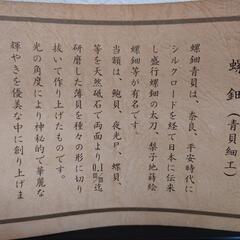 螺鈿(青貝細工)
螺鈿青貝は、奈良、平安時代に
シルクロードを経て日本に伝来
し盛行螺鈿の太刀、梨子地蒔絵
螺鈿等が有名です。
当額は、鮑貝、夜光貝、蝶貝、
等を天然砥石で両面より0.1mm迄
研磨した薄貝を種々の形に切り
抜いて作り上げたものです。
光の角度により神秘的で華麗な
輝やきを優美な中に創り上げま